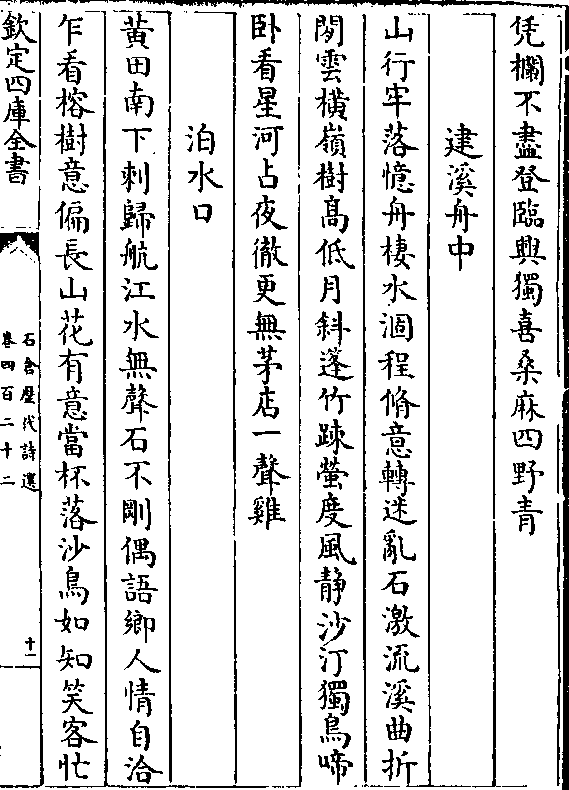 凭欄不盡登臨興獨喜桑麻四野青
建溪舟中
山行牢落憶舟棲水涸程脩意轉迷亂石激流溪曲折
閒雲橫嶺樹髙低月斜蓬竹踈螢度風静沙汀獨鳥啼
卧看星河占夜徹更無茅店一聲雞
泊水口
黃田南下刺歸航江水無聲石不剛偶語鄉人情自洽
乍看榕樹意偏長山花有意當杯落沙鳥如知笑客忙
欽定四庫全書
石倉歷代詩選
卷四百二十二
十一